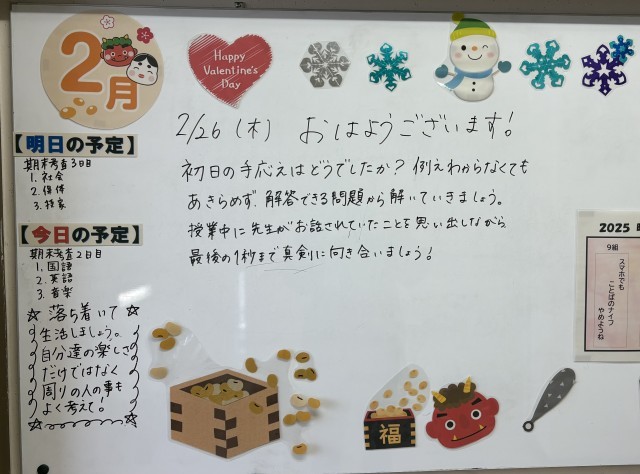 2月
Happy
Valentine's
Day
2/26(木) おはようございます!
初日の手応えはどうでしたか?例えわからなくても
あきらめず、解答できる問題から解いていきましょう。
授業中に先生がお話されていたことを思い出しながら
最後の1秒まで真剣に向き合いましょう!
【明日の予定】
期末考査3日目
1. 社会
2. 保体
3. 技家
【今日の予定】
期末考査2日目
1. 国語
2. 英語
3. 音楽
☆落ち着いて☆
生活しましょう。
自分達の楽しさ
だけではなく
周りの人の事も
よく考えて!
福
2025
9組
スマホでも
ことばのナイフ
やめようね